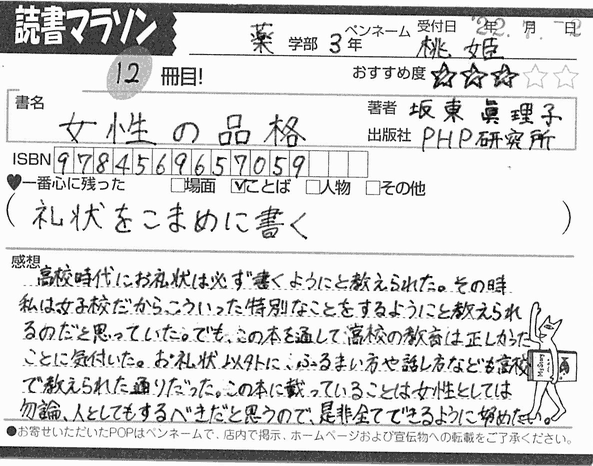 読書マラソン
薬 学部 3年
ペンネーム 桃姫
受付日 '22年 7月 2日
12 冊目!
おすすめ度 ★★★☆☆
書名 女性の品格
著者 坂東眞理子
出版社 PHP研究所
ISBN 9784569657059
♥一番心に残った □場面 ☑ことば □人物 □その他
(礼状をこまめに書く)
感想
高校時代にお礼状は必ず書くようにと教えられた。その時
私は女子校だからこういった特別なことをするようにと教えられ
るのだと思っていた。でも、この本を通して高校の教育は正しかった
ことに気付いた。お礼状以外に、ふるまい方や話し方なども高校
で教えられた通りだった。この本に載っていることは女性としては
勿論、人としてもするべきだと思うので、是非全てできるように努めたい。
●お寄せいただいたPOPはペンネームで、店内で掲示、ホームページおよび宣伝物への転載をご了承ください。